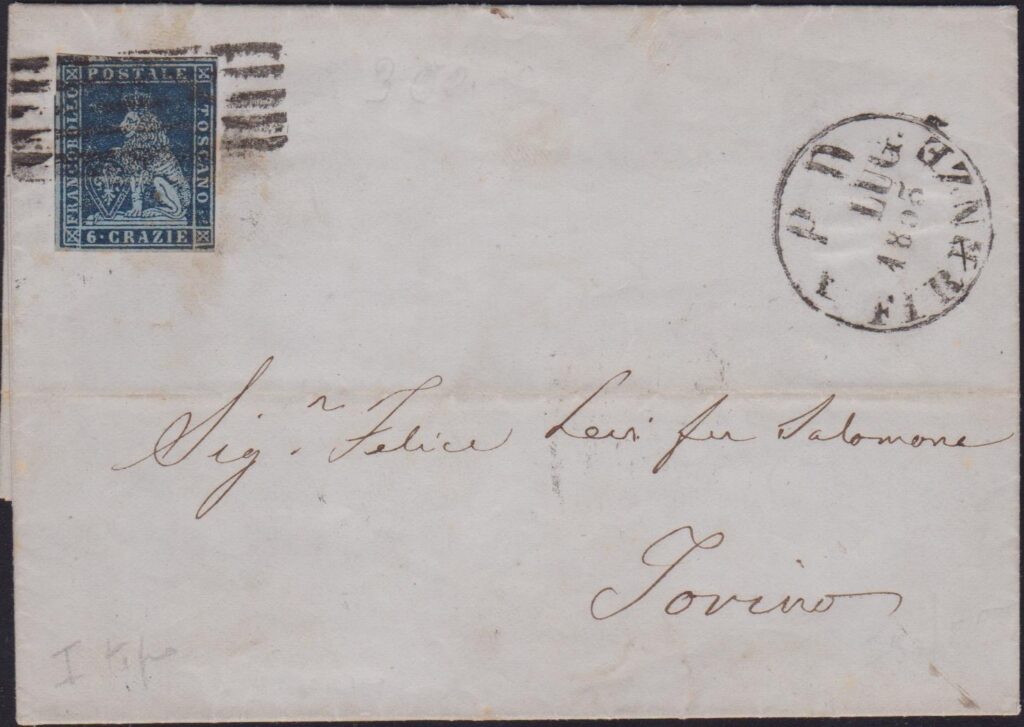 FRANCOBOLLO POSTALE TOSCANO
6 · CRAZIE
P D
LUG.
FIRENZE
Sig.r Felice Levi fu Salomone
Torino
I tipo